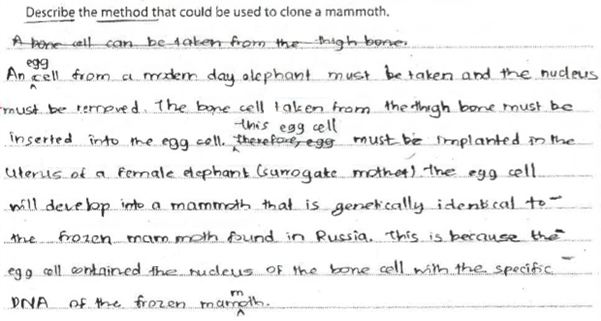 Describe the method that could be used to clone a mammoth.
A bone cell can be taken from the thigh bone.
An egg cell from a modern day elephant must be taken and the nucleus
must be removed. The bone cell taken from the thigh bone must be
inserted into the egg cell. therefore, egg this egg cell must be implanted in the
uterus of a female elephant (surrogate mother). The egg cell
will develop into a mammoth that is genetically identical to
the frozen mammoth found in Russia. This is because the
egg cell contained the nucleus of the bone cell with the specific
DNA of the frozen mammoth.